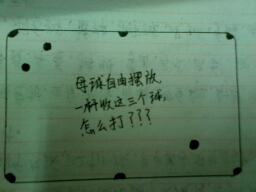 母球自由摆放
一杆收这三个球,
怎么打???